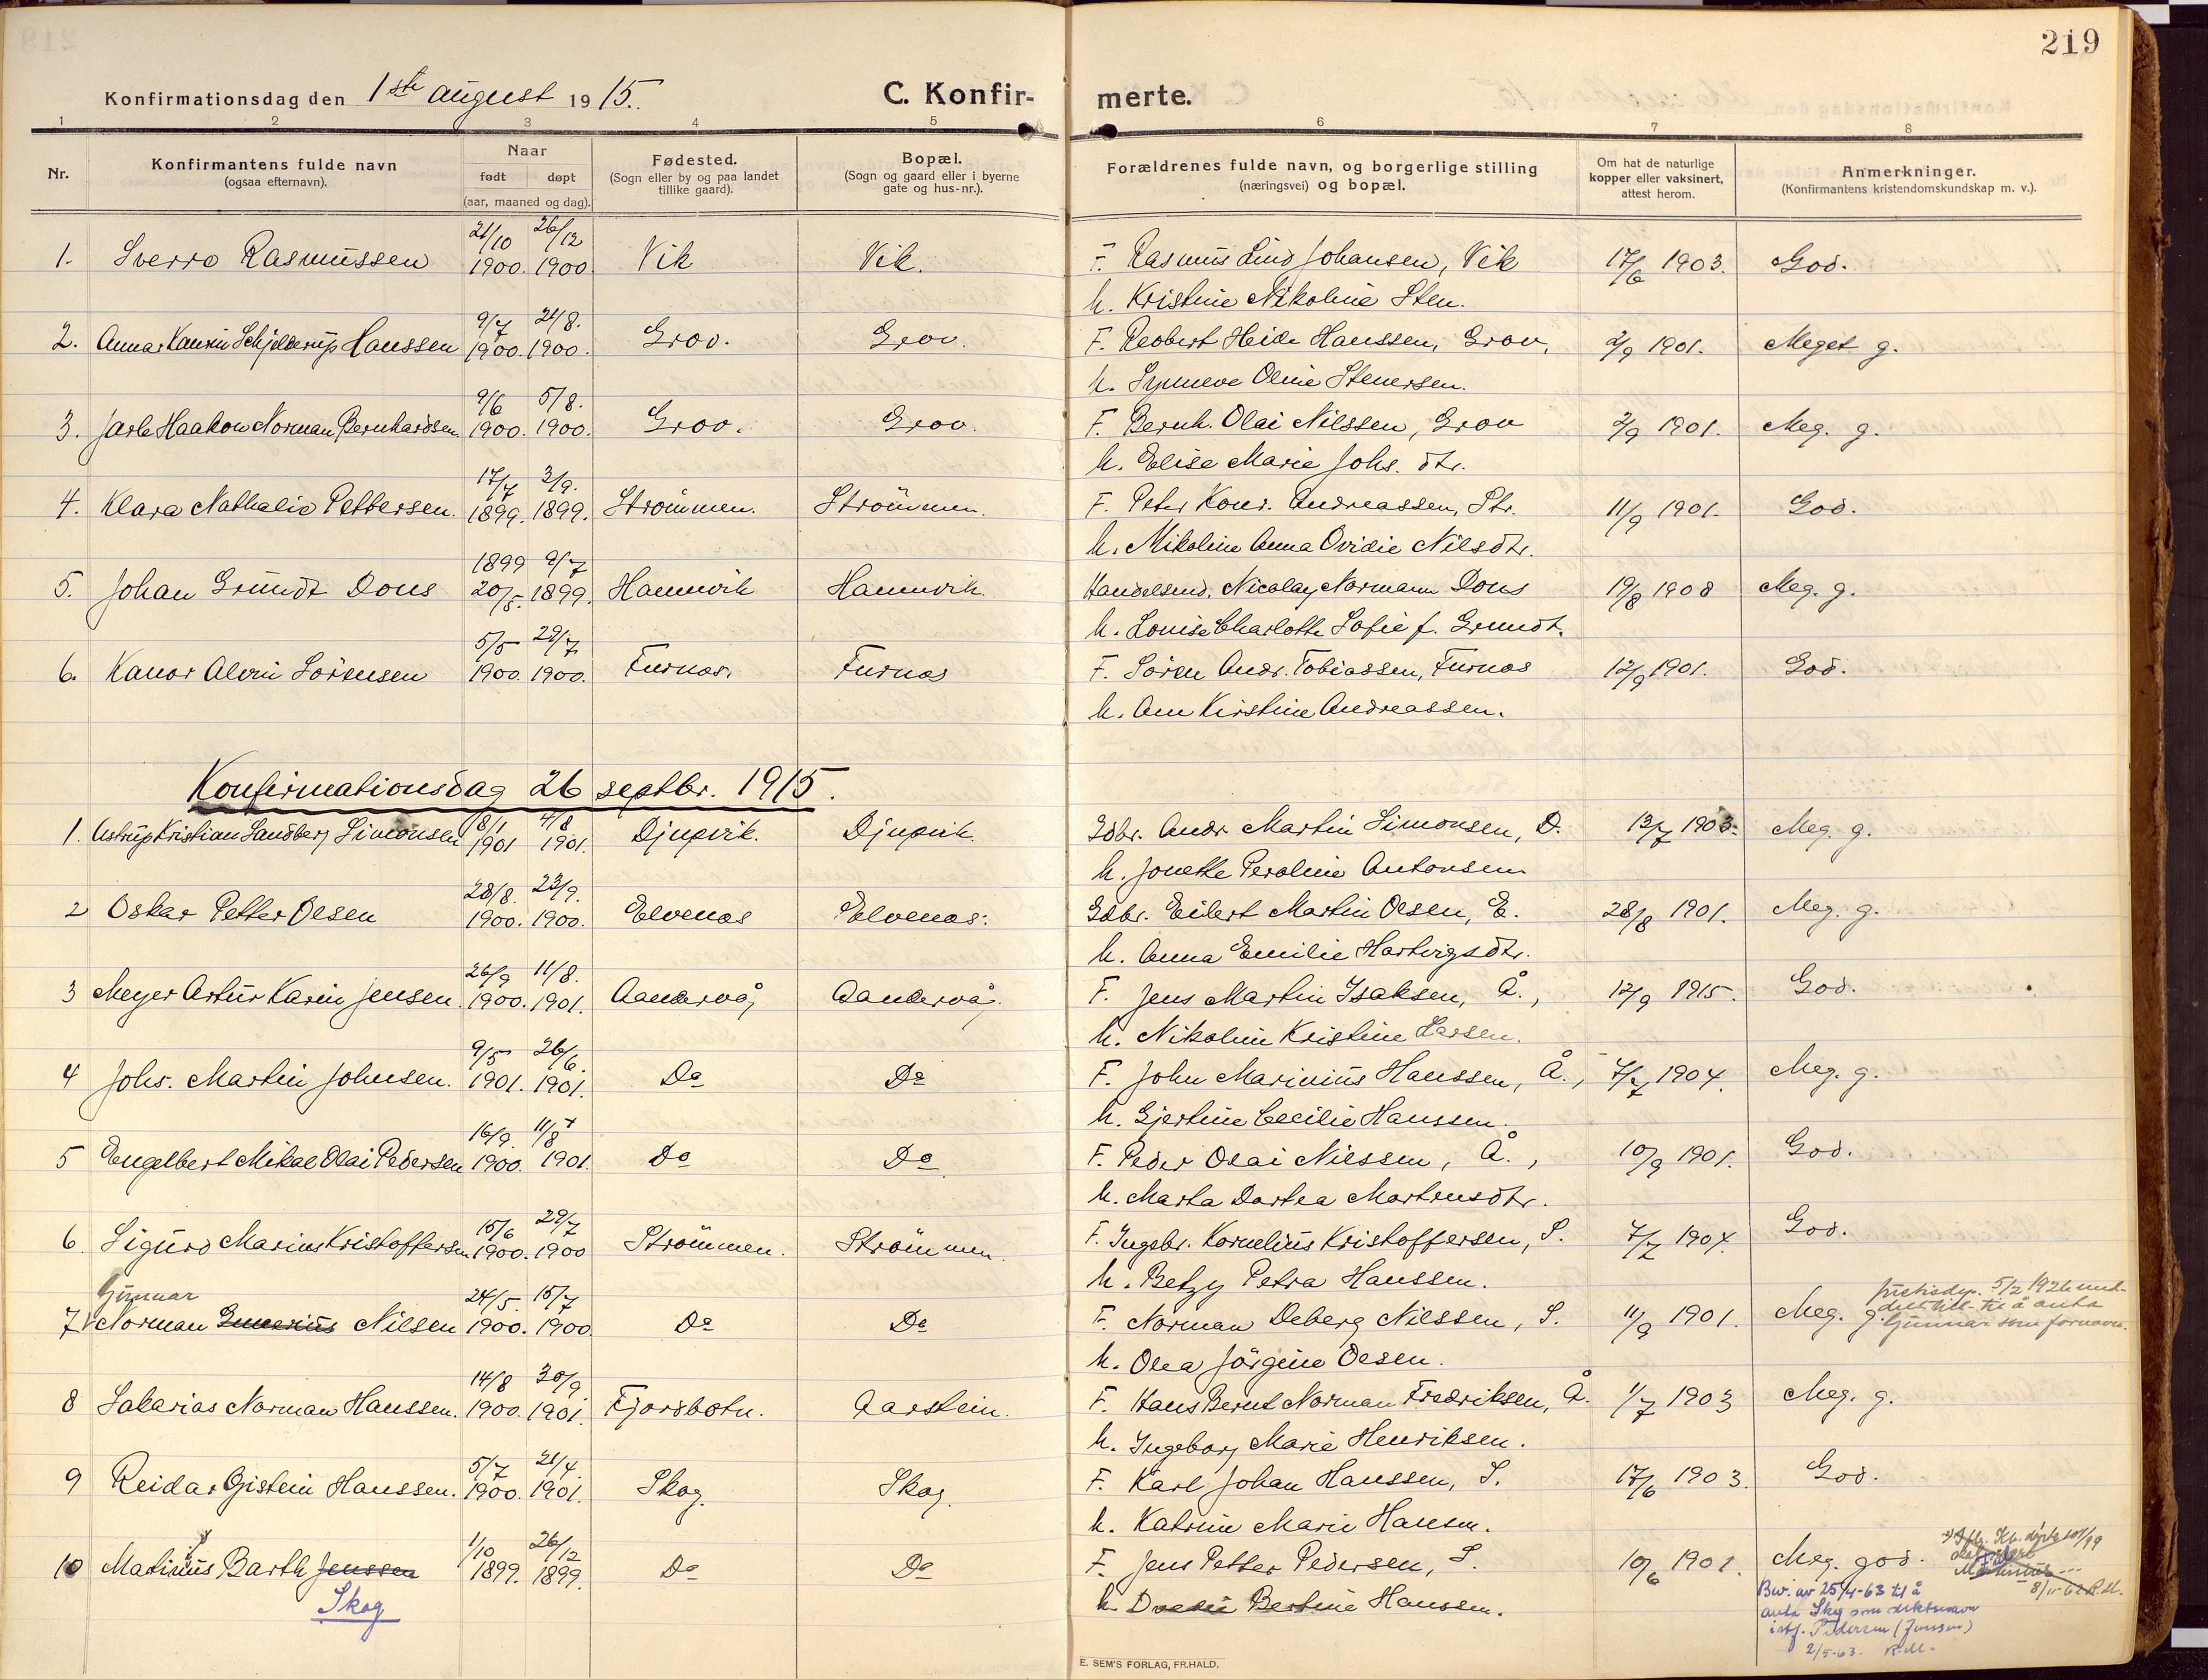 219
Konfirmationsdag den 1ste august 1915. C. Konfir- merte.
1 2 3 4 5 6 7 8
Nr. Konfirmantens fulde navn (ogsaa efternavn). Naar født døpt (aar, maaned og dag). Fødested. (Sogn eller by og paa landet tillike gaard). Bopæl. (Sogn og gaard eller i byerne gate og hus-nr.). Forældrenes fulde navn, og borgerlige stilling (næringsvei) og bopæl. Om hat de naturlige kopper eller vaksinert, attest herom. Anmerkninger. (Konfirmantens kristendomskundskap m. v.).
1. Sverre Rasmussen 21/10 1900. 26/12 1900. Vik Vik. F. Rasmus Lind Johansen, Vik 17/6 1903. God.
h. Kristine Nikoline Sten.
2. Schjelderup Hanssen 9/7 1900. 21/8. 1900. Grov. Grov. F. Robert Heide Hanssen, Grov, 2/9 1901. Meget g.
h. Synneve Oline Stenersen.
3. Jarle Haakon Norman Bernhardsen. 9/6 1900. 5/8. 1900. Grov. Grov. F. Bernh. Olai Nilssen, Grov 2/9 1901. Meg. g.
h. Elise Marie Johs. dtr.
4. Klara Nathalie Pettersen. 17/7 1899. 3/9. 1899. Strømmen. Strömmen. F. Peter Konr. Andreassen, Str. 11/9 1901. God.
h. Nikoline Anna Ovidie Nilsdtr.
5. Johan Grundt Dons 1899 20/5. 9/7 1899. Hamnvik Hamnvik. Handelsmd. Nicolay Normann Dons 19/8 1908 Meg. g.
h. Louise Charlotte Sofie f. Grundt.
6. Kanor Alvin Sörensen 5/5 1900. 29/7 1900. Furnes. Furnes F. Sören Andr. Tobiassen, Furnes 12/9 1901. God.
h. Ane Kirstine Andreassen.
Konfirmationsdag 26 septbr. 1915.
1. Astrup Kristian Sandberg Simonsen 8/1 1901 4/8 1901. Djupvik. Djupvik. Gdbr. Andr. Martin Simonsen, D. 13/7 1903. Meg. g.
h. Jonette Peroline Antonsen
2 Oskar Petter Olsen 28/8. 1900. 23/9. 1900. Elvenes Elvenes. Gdbr. Eilert Martin Olsen, E. 28/8 1901. Meg. g.
h. Anna Emilie Hartvigsdtr.
3 Meyer Artur Karin Jensen. 26/9 1900. 11/8. 1901. Aandervåg Aandervåg. F. Jens Martin Isaksen, Å., 12/9 1915. God.
h. Nikoline Kristine Larsen.
4 Johs. Martin Johnsen. 9/5 1901. 26/6. 1901. Do Do F. John Marinius Hanssen, Å., 7/7 1904. Meg. g.
h. Gjertine Cecilie Hanssen.
5 Engelbert Mikal Olai Pedersen 16/9. 1900. 11/8 1901. Do Do F. Peder Olai Nilssen, Å., 10/9 1901. God.
h. Marta Dortea Mortensdtr.
6. Sigurd Marius Kristoffersen 15/6 1900. 29/7 1900 Strömmen. Strömmen. F. Ingebr. Kornelius Kristoffersen, S. 7/7 1904. God.
h. Betzy Petra Hanssen.
Gunnar
7 Norman Gunerius Nilsen 24/5. 1900. 15/7 1900. Do Do F. Norman Deberg Nilssen, S. 11/9 1901. Meg. g. 5/2 1926 till. til å anta Gunnar som fornavn.
h. Olea Jörgine Olsen.
8 Sakarias Norman Hanssen. 14/8 1900. 30/9. 1901. Fjordbotn. Aarstein. F. Hans Bernt Norman Fredriksen, Å. 1/7 1903 Meg. g.
h. Ingeborg Marie Henriksen.
9 Reidar Øistein Hanssen. 5/7 1900. 21/4. 1901. Skog. Skog. F. Karl Johan Hanssen, S. 17/6 1903. God.
h. Katrine Marie Hansen.
10 Matinus Barth Jenssen 1/10 1899. 26/12 1899. Do Do F. Jens Petter Pedersen, S. 10/6 1901. Meg. god.
Skog h. Bertine Hanssen.
Bev. av 25/4-63 til å
anta Skog som slektsnavn
istf. Pedersen (Jenssen)
2/5-63. R.M.
E. SEM'S FORLAG, FR.HALD.